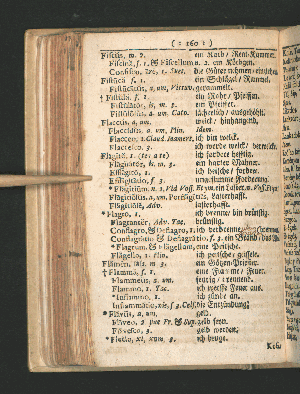 ( : 160 : )
Fiscus, m. 2. ein Korb / Rent-Kammer.
Fiscina, f. 1. & Fiscellum n. 2. ein Körbgen.
Confisco, 1. Suet. die Güter nehmen
Fistuca f. 1. ein Schlägel / Rammel.
Fistucatus, a, um, Vitruv. gerammelt.
† Fistula, f. 1. ein Rohr / Pfeiffen.
Fistulator, is, m. 3. ein Pfeiffer.
Fistulosus, a, um. Cato. löchericht / ausgehöhlt.
Flaccus, a, um, welck / hinhangend.
Flaccidus, a, um, Plin. idem.
Flacceo, ich bin welck.
Flaccesco, 3. ich werde welck /
Flagito, 1. ich fordere hefftig.
Flagitator, is, m. 3. ein harter Mahner.
Efflagito, 1. ich heische / fordere.
Efflagitatio, f. 3. ungestümme Forderung.
* Flagitium, n. 2. ein Laster,
Flagitiosus, a, um, lasterhafft.
Flagitiosè, Adv. lasterhafft.
* Flagro, 1. ich brenne bin brünstig.
Flagranter, Adv. Tac. brünstig.
Conflagro, & Deflagro, 1. ich verbrenne
Conflagratio & Deflagratio, f. 3. ein Brand /
* Flagrum, & Flagellum, eine Peitsche.
Flagello, 1. Plin. ich peitsche / geissele.
Flamen, inis, m. 3. ein Götzen-Priester.
† Flamma, f. 1. eine Flamme / Feuer.
Flammeus, a, um, feurig / brennend.
Flammo, 1. Tac. ich werffe Feuer aus.
* Inflammo, 1. ich zünde an.
Inflammatio, nis, f. 3. Cels. die Entzündung;
* Flavus, a, um, gelb.
Flaveo, 2. gelb seyn.
Flavesco, 3. gelb werden.
* Flecto, xi, xum, 3. ich beuge.